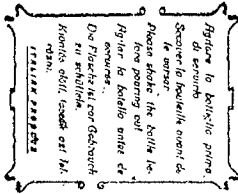 Agitare la bottiglia prima
di servirlo
Secouer la bouteille avant de
le verser
Please shake the bottle be-
fore pouring out
Agitar la botella antes de
Die Flasche ist vor Gebrauch
zu schütteln.
Kiöntés előtt
rázni.
ITALIAN PRODUCE